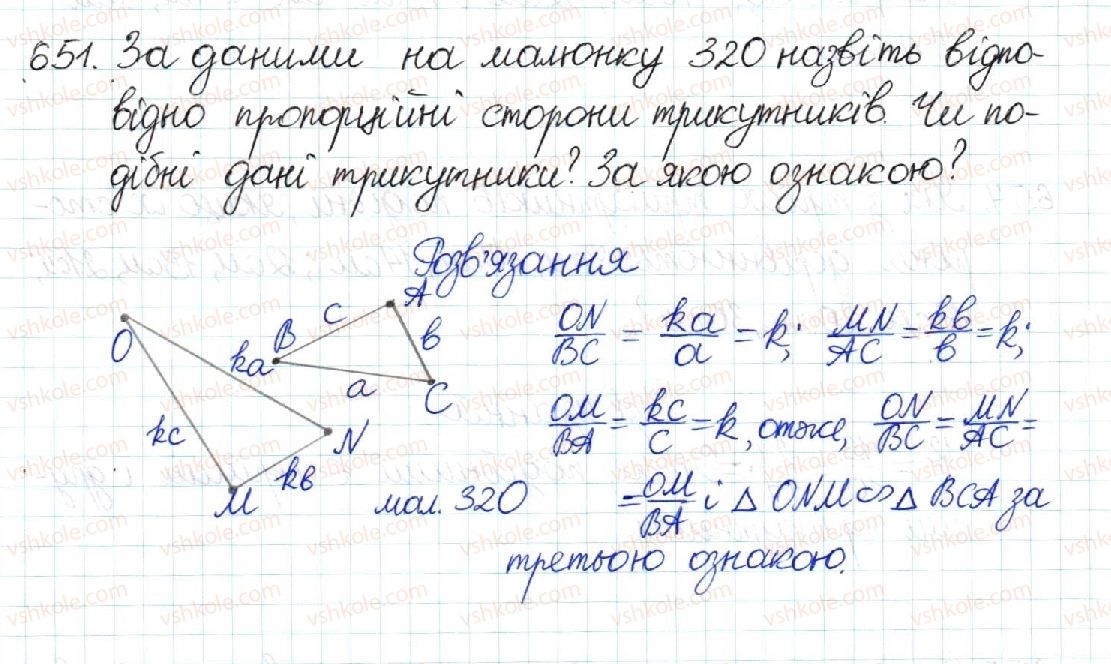 651. За даними на малюнку 320 назвіть відпо-
відно пропорційні сторони трикутників. Чи по-
дібні дані трикутники? За якою ознакою?
Розв'язання
O ka B c A в a C N kc M kв
ON/BC = ka/a = k; MN/AC = kв/в = k;
OM/BA = kc/c = k, отже, ON/BC = MN/AC =
мал. 320
= OM/BA і △ ONM ∽ △ BCA за
третьою ознакою.